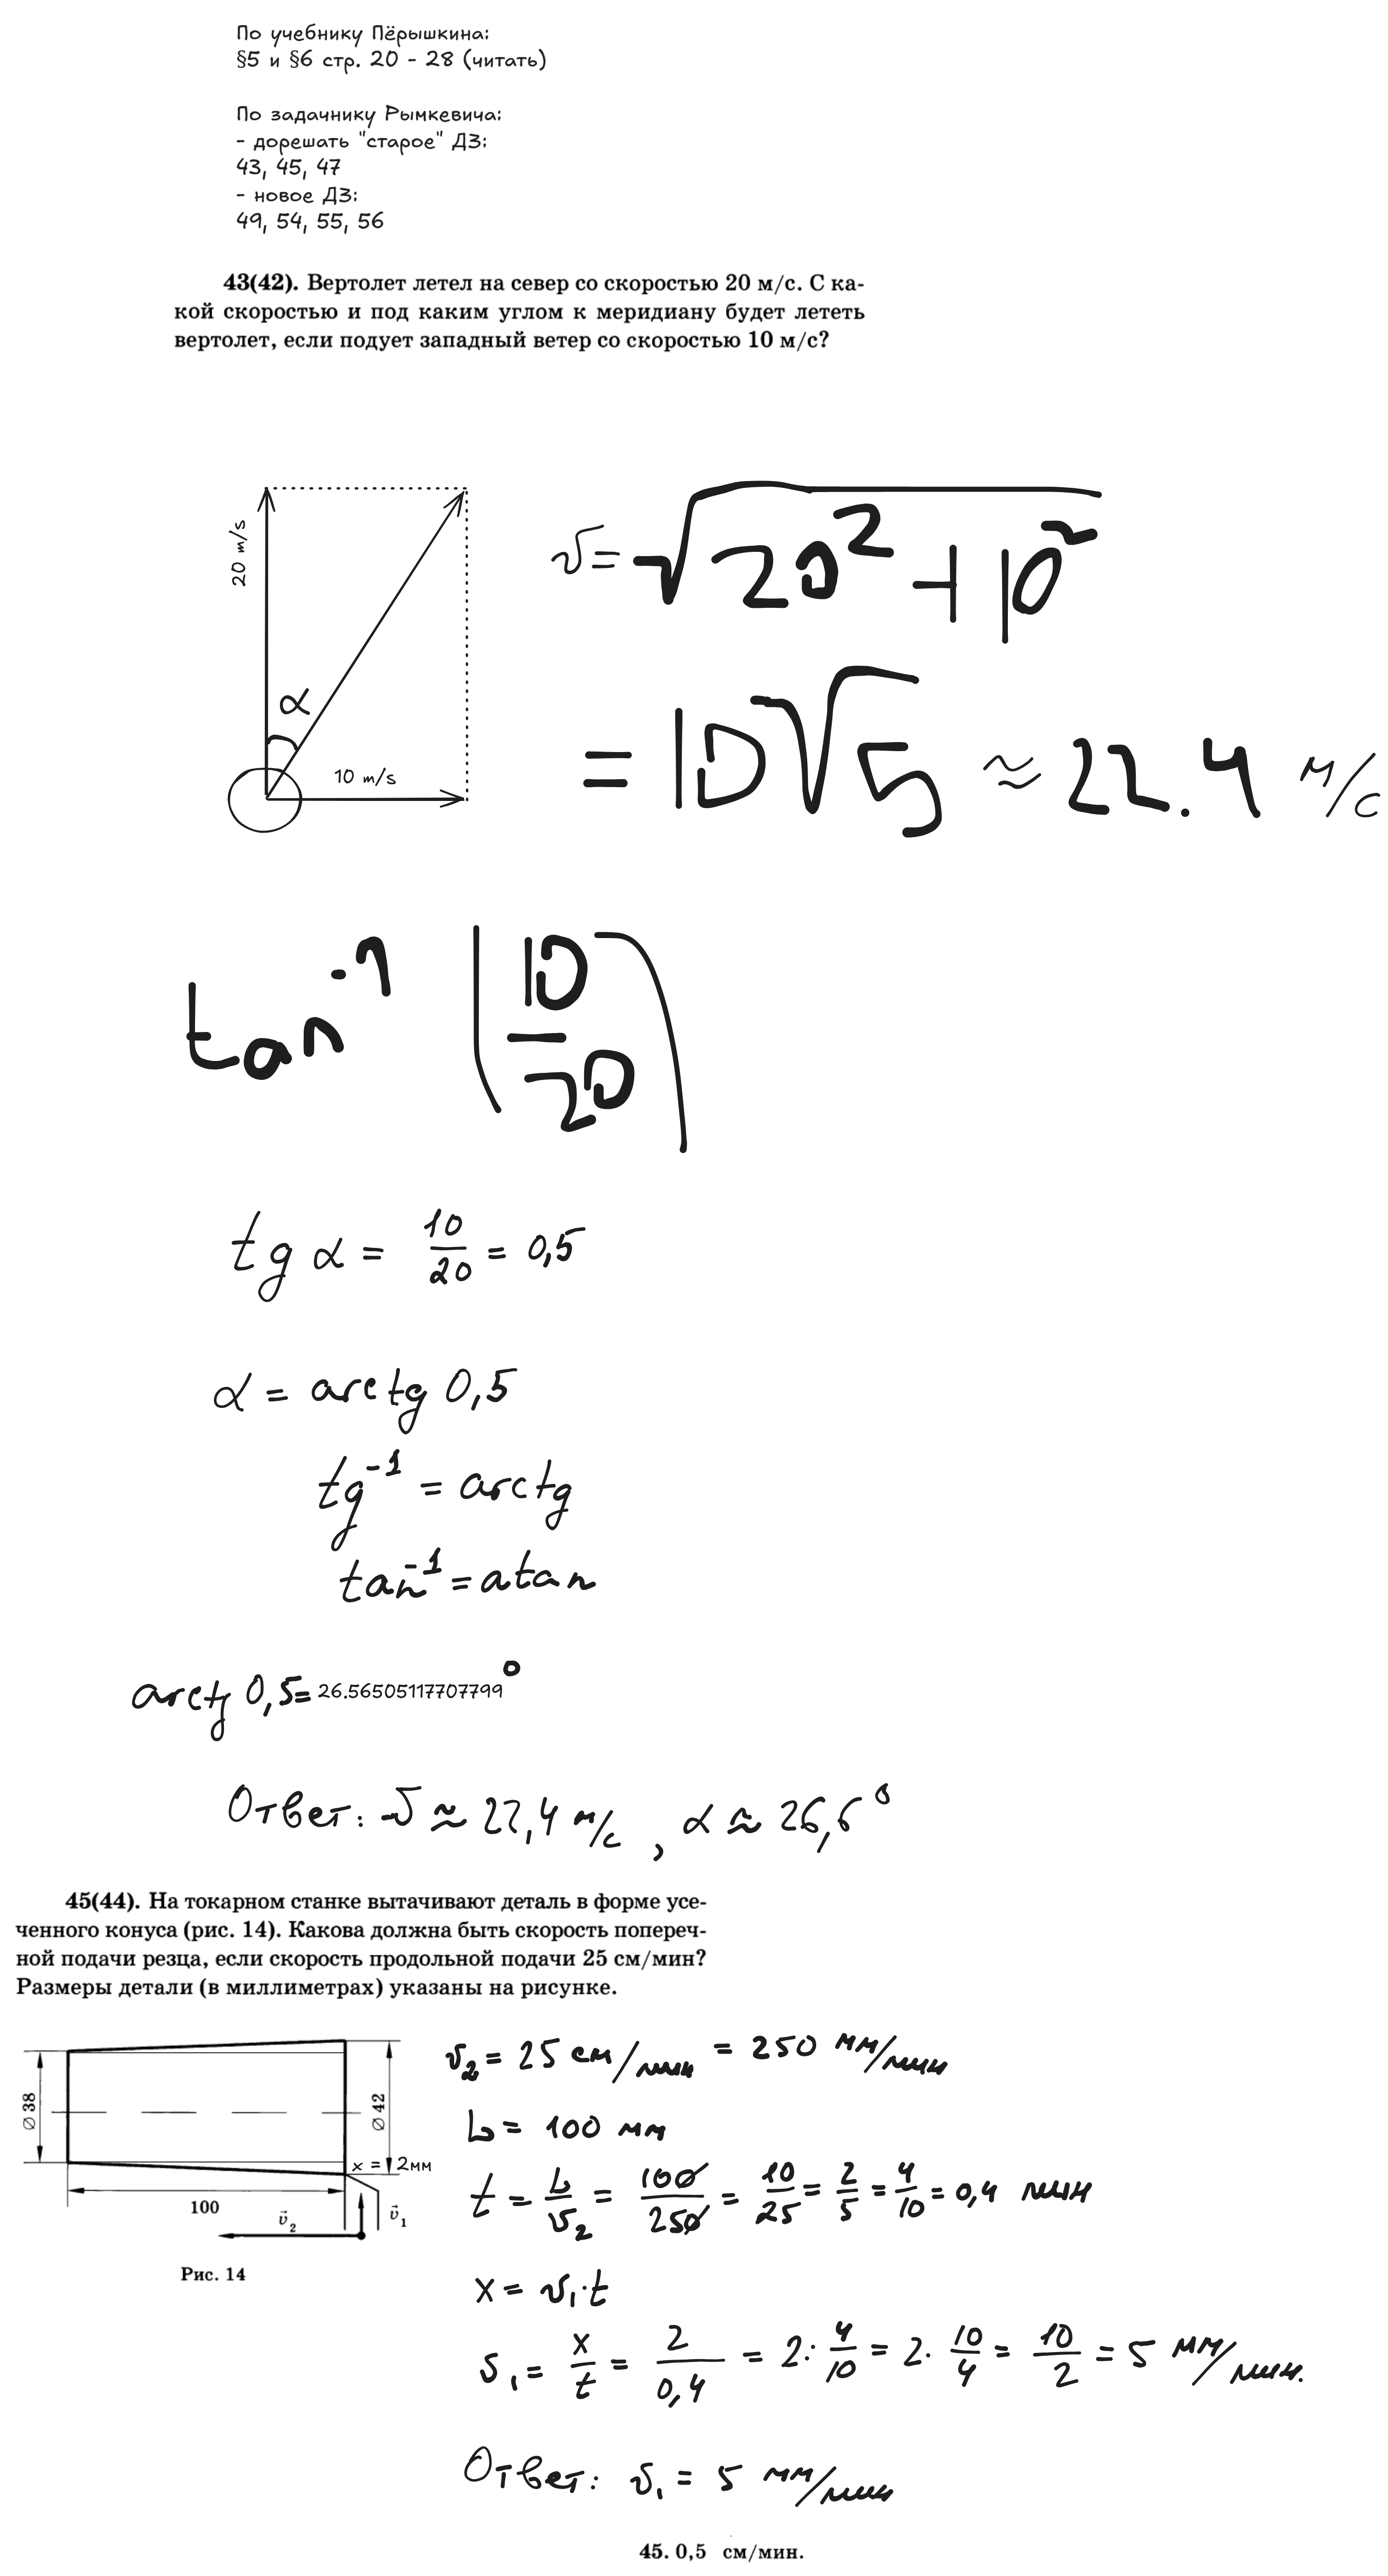 По учебнику Пёрышкина:
§5 и §6 стр. 20 - 28 (читать)
По задачнику Рымкевича:
- дорешать "старое" ДЗ:
43, 45, 47
- новое ДЗ:
49, 54, 55, 56
43(42). Вертолет летел на север со скоростью 20 м/с. С ка-
кой скоростью и под каким углом к меридиану будет лететь
вертолет, если подует западный ветер со скоростью 10 м/с?
20 m/s
α
10 m/s
v = √(20² + 10²)
= 10√5 ≈ 22.4 м/с
tan⁻¹ (10/20)
tg α = 10/20 = 0,5
α = arctg 0,5
tg⁻¹ = arctg
tan⁻¹ = atan
arctg 0,5 = 26.56505117707799°
Ответ: v ≈ 22,4 м/с, α ≈ 26,6°
45(44). На токарном станке вытачивают деталь в форме усе-
ченного конуса (рис. 14). Какова должна быть скорость попереч-
ной подачи резца, если скорость продольной подачи 25 см/мин?
Размеры детали (в миллиметрах) указаны на рисунке.
∅ 38
∅ 42
x = 2мм
100
v⃗₂
v⃗₁
Рис. 14
v₂ = 25 см/мин = 250 мм/мин
L = 100 мм
t = L/v₂ = 100/250 = 10/25 = 2/5 = 4/10 = 0,4 мин
x = v₁·t
v₁ = x/t = 2/0,4 = 2 : 4/10 = 2 · 10/4 = 10/2 = 5 мм/мин.
Ответ: v₁ = 5 мм/мин
45. 0,5 см/мин.